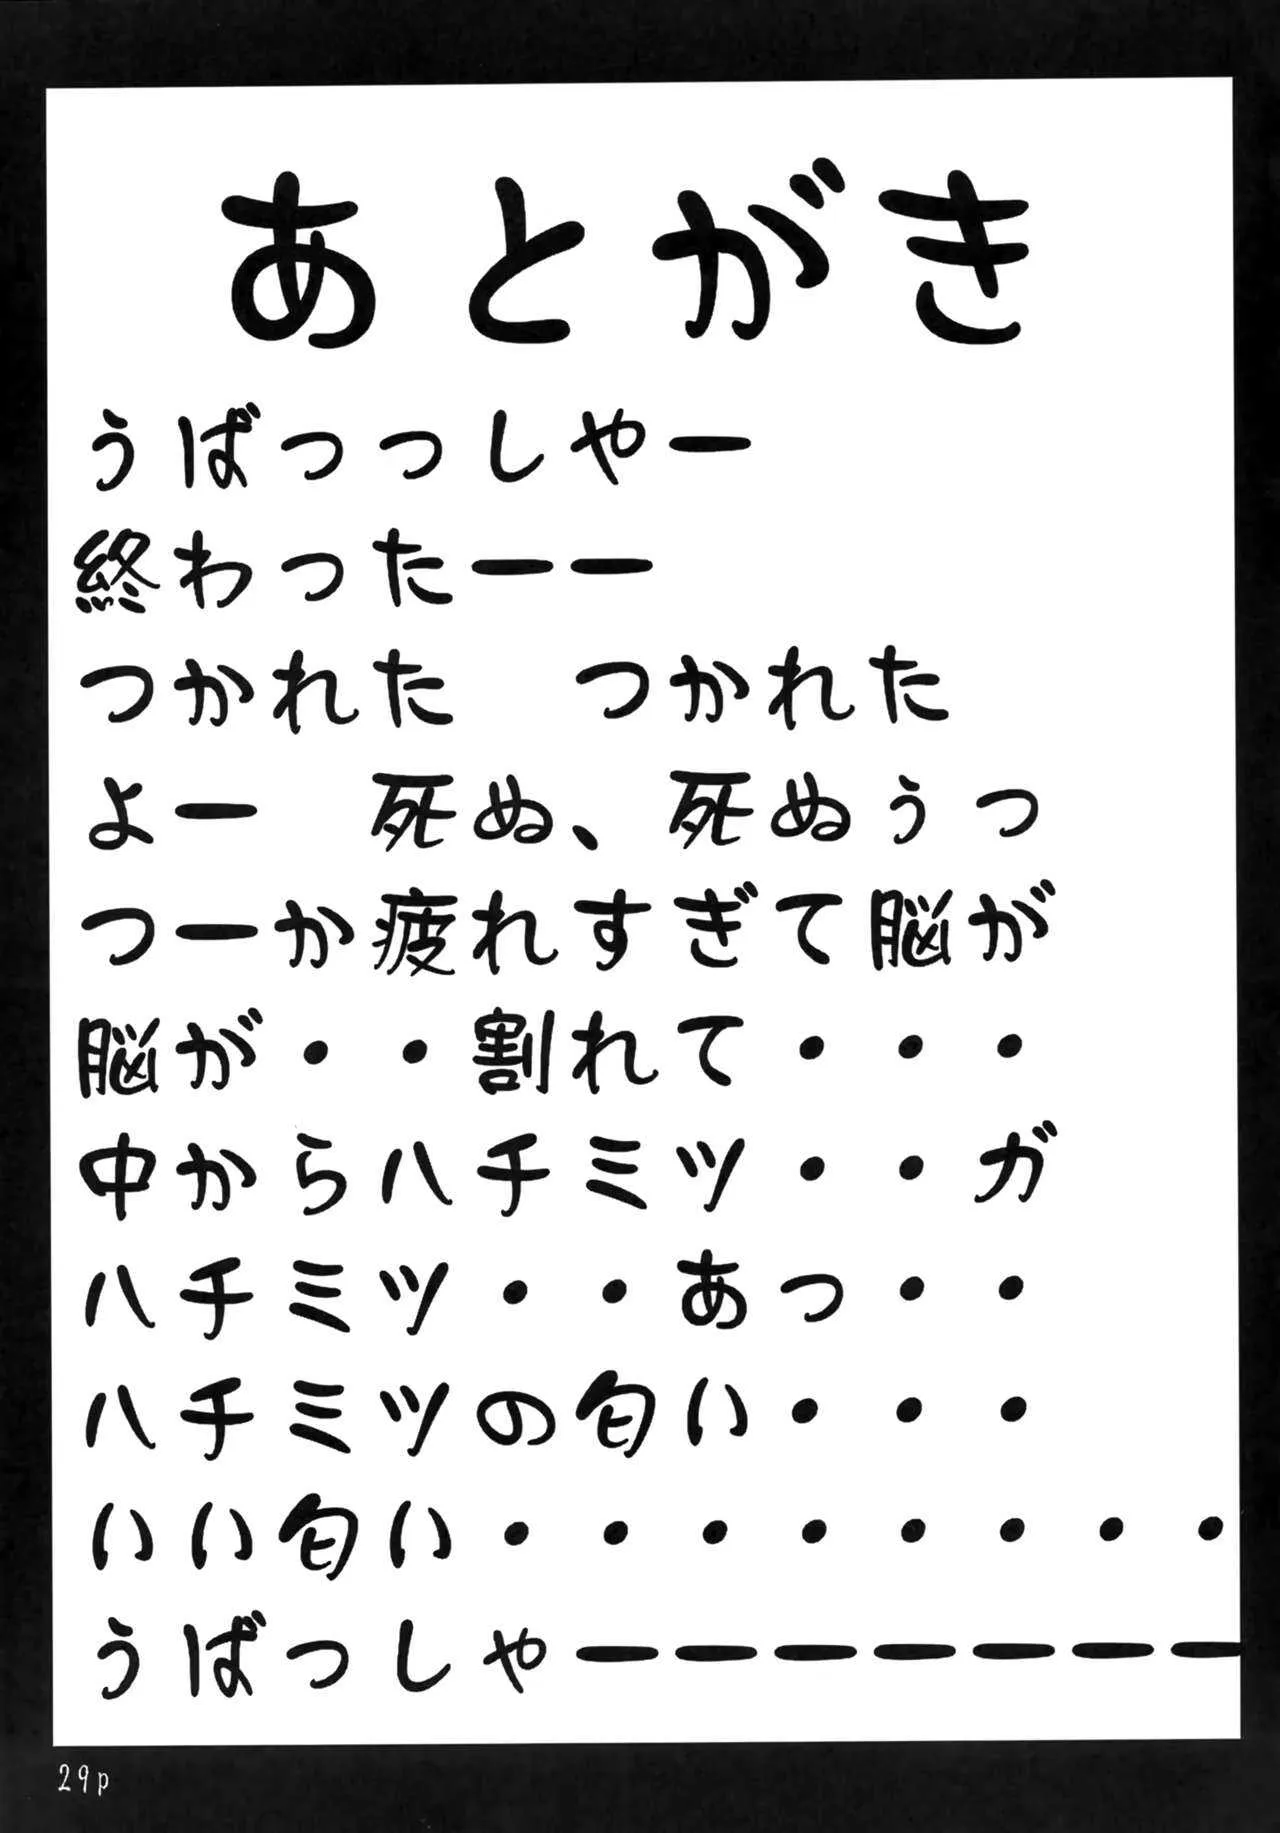 あとがき
うばっっしゃー
終わったーー
つかれた　つかれた
よー　死ぬ、死ぬぅっ
つーか疲れすぎて脳が
脳が・・割れて・・・
中からハチミツ・・ガ
ハチミツ・・あっ・・
ハチミツの匂い・・・
いい匂い・・・・・・・・
うばっしゃーーーーーーー
29p